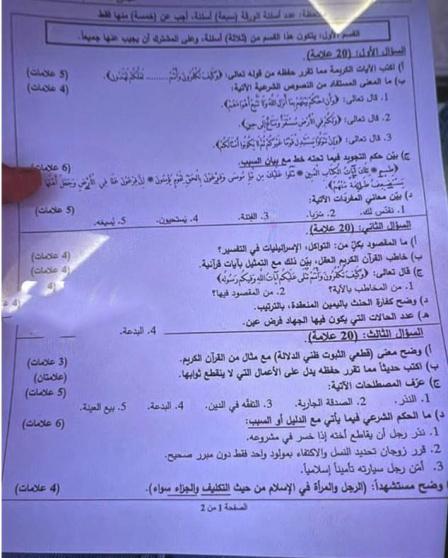 ملاحظة: عدد أسئلة الورقة (سبعة) أسئلة، أجب عن (خمسة) منها فقط
القسم الأول: يتكون هذا القسم من (ثلاثة) أسئلة، وعلى المشترك أن يجيب عنها جميعاً.
السؤال الأول: (20 علامة)
أ) اكتب الآيات الكريمة مما تقرر حفظه من قوله تعالى: ﴿وَكَيْفَ تَكْفُرُونَ وَأَنْتُمْ ......... لَعَلَّكُمْ تَهْتَدُونَ﴾. (5 علامات)
ب) ما المعنى المستفاد من النصوص الشرعية الآتية: (4 علامات)
1. قال تعالى: ﴿وَأَنِ احْكُمْ بَيْنَهُمْ بِمَا أَنْزَلَ اللَّهُ وَلَا تَتَّبِعْ أَهْوَاءَهُمْ﴾.
2. قال تعالى: ﴿وَلَكُمْ فِي الْأَرْضِ مُسْتَقَرٌّ وَمَتَاعٌ إِلَى حِينٍ﴾.
3. قال تعالى: ﴿وَإِنْ تَتَوَلَّوْا يَسْتَبْدِلْ قَوْمًا غَيْرَكُمْ ثُمَّ لَا يَكُونُوا أَمْثَالَكُمْ﴾.
ج) بيّن حكم التجويد فيما تحته خط مع بيان السبب. (6 علامات)
﴿طسم * تِلْكَ آيَاتُ الْكِتَابِ الْمُبِينِ * نَتْلُو عَلَيْكَ مِنْ نَبَإِ مُوسَى وَفِرْعَوْنَ بِالْحَقِّ لِقَوْمٍ يُؤْمِنُونَ * إِنَّ فِرْعَوْنَ عَلَا فِي الْأَرْضِ وَجَعَلَ أَهْلَهَا
يَسْتَضْعِفُ طَائِفَةً مِنْهُمْ﴾.
د) بيّن معاني المفردات الآتية: (5 علامات)
1. نقدّس لك. 2. 3. الفتنة. 4. يستحيون. 5.
السؤال الثاني: (20 علامة).
أ) ما المقصود بكلٍّ من: التواكل، الإسرائيليات في التفسير؟ (4 علامات)
ب) خاطب القرآن الكريم العقل، بيّن ذلك مع التمثيل بآيات قرآنية. (4 علامات)
ج) قال تعالى: ﴿وَكَيْفَ تَكْفُرُونَ وَأَنْتُمْ تُتْلَى عَلَيْكُمْ آيَاتُ اللَّهِ وَفِيكُمْ رَسُولُهُ﴾. (4 علامات)
1. من المخاطب بالآية؟ 2. من المقصود فيها؟
د) وضح كفارة الحنث باليمين المنعقدة، بالترتيب.
هـ) عدد الحالات التي يكون فيها الجهاد فرض عين.
4. البدعة.
السؤال الثالث: (20 علامة).
أ) وضح معنى (قطعي الثبوت ظني الدلالة) مع مثال من القرآن الكريم. (3 علامات)
ب) اكتب حديثاً مما تقرر حفظه يدل على الأعمال التي لا ينقطع ثوابها. (علامتان)
ج) عرّف المصطلحات الآتية: (5 علامات)
1. النذر. 2. الصدقة الجارية. 3. التفقه في الدين. 4. البدعة. 5. بيع العينة.
د) ما الحكم الشرعي فيما يأتي مع الدليل أو السبب: (6 علامات)
1. نذر رجل أن يقاطع أخته إذا خسر في مشروعه.
2. قرر زوجان تحديد النسل والاكتفاء بمولود واحد فقط دون مبرر صحيح.
3. أمّن رجل سيارته تأميناً إسلامياً.
وضح مستشهداً: (الرجل والمرأة في الإسلام من حيث التكليف والجزاء سواء). (4 علامات)
الصفحة 1 من 2